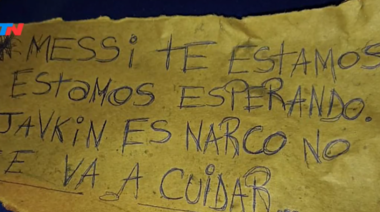 TN
MESSI TE ESTAMOS
ESTAMOS ESPERANDO.
JAVKIN ES NARCO NO
TE VA A CUIDAR